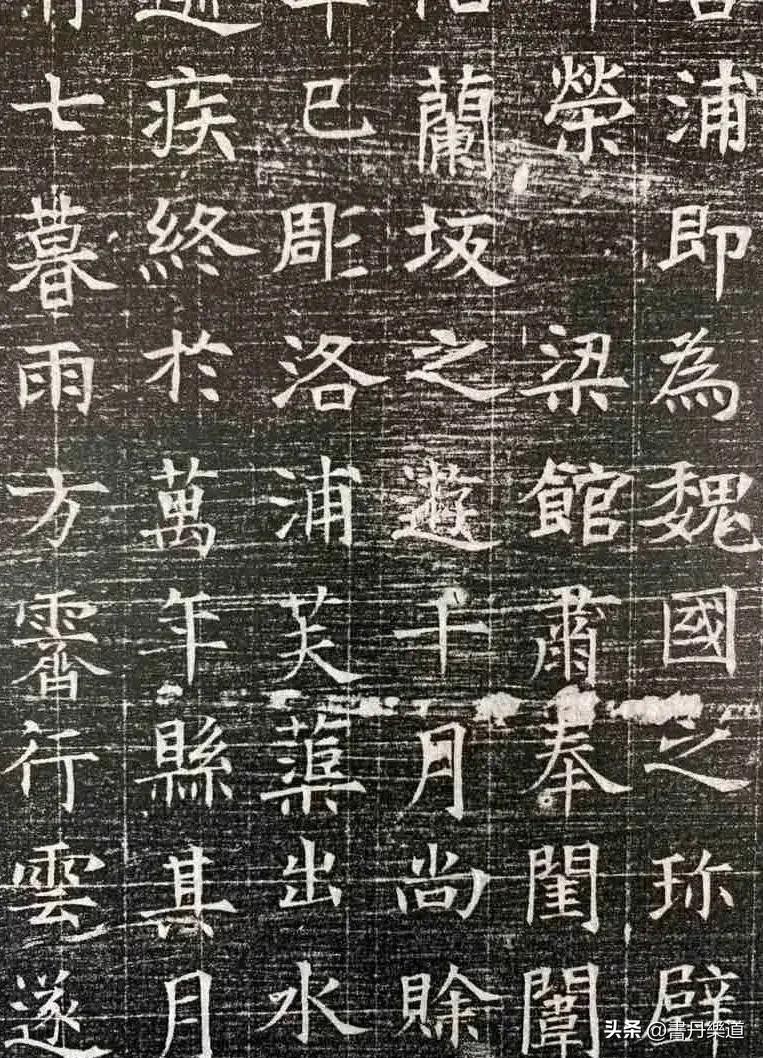 浦即為魏國之珎
榮 梁館肅奉閨闈
蘭坂之遊千月尚賖
已彫洛浦芙蕖出水
疾終於萬年縣其月
七暮雨方霽行雲遂
头条 @書丹樂道